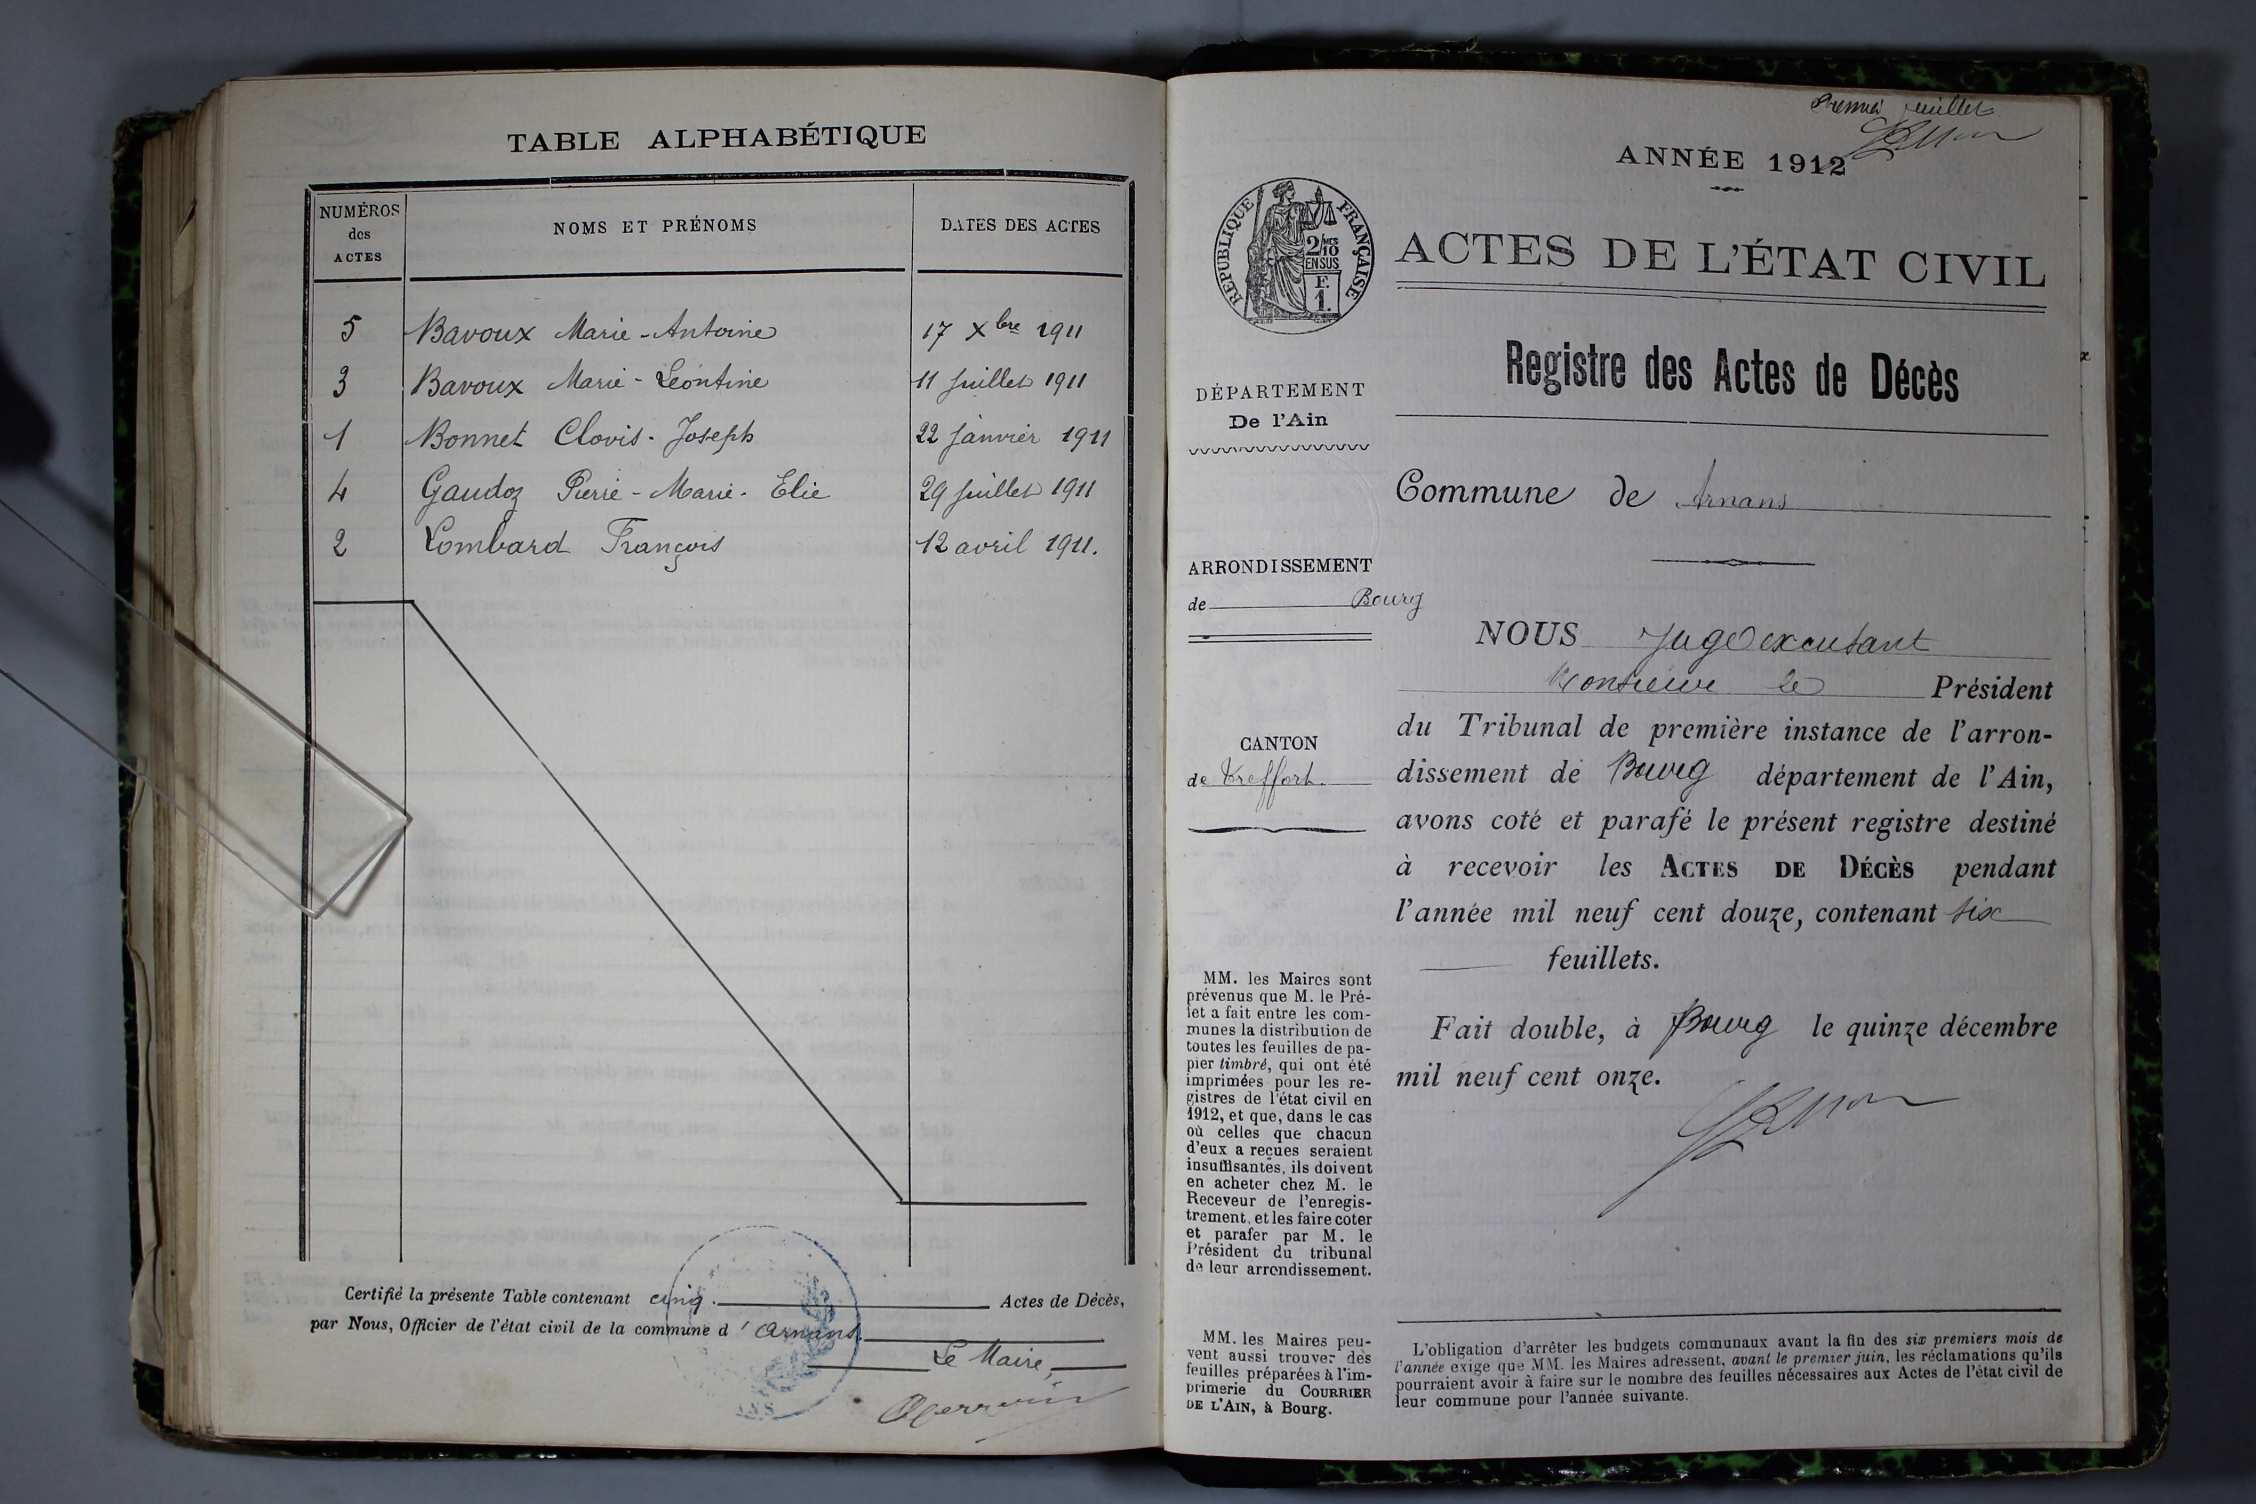 TABLE ALPHABÉTIQUE
NUMÉROS
des
ACTES
NOMS ET PRÉNOMS
DATES DES ACTES
5 Bavoux Marie-Antoine 17 Xbre 1911
3 Bavoux Marie-Léontine 11 juillet 1911
1 Bonnet Clovis-Joseph 22 janvier 1911
4 Gaudoz Pierre-Marie-Elie 29 juillet 1911
2 Lombard François 12 avril 1911.
Certifié la présente Table contenant cinq. Actes de Décès,
par Nous, Officier de l'état civil de la commune d'Arnans
Le Maire,
Premier feuillet
ANNÉE 1912
RÉPUBLIQUE FRANÇAISE
2/10 MES
EN SUS
F.
1.
ACTES DE L'ÉTAT CIVIL
Registre des Actes de Décès
DÉPARTEMENT
De l'Ain
Commune de Arnans
ARRONDISSEMENT
de Bourg
CANTON
de Treffort.
MM. les Maires sont
prévenus que M. le Pré-
fet a fait entre les com-
munes la distribution de
toutes les feuilles de pa-
pier timbré, qui ont été
imprimées pour les re-
gistres de l'état civil en
1912, et que, dans le cas
où celles que chacun
d'eux a reçues seraient
insuffisantes, ils doivent
en acheter chez M. le
Receveur de l'enregis-
trement, et les faire coter
et parafer par M. le
Président du tribunal
de leur arrondissement.
MM. les Maires peu-
vent aussi trouver des
feuilles préparées à l'im-
primerie du COURRIER
DE L'AIN, à Bourg.
NOUS Juge excusant
Monsieur le Président
du Tribunal de première instance de l'arron-
dissement de Bourg département de l'Ain,
avons coté et parafé le présent registre destiné
à recevoir les ACTES DE DÉCÈS pendant
l'année mil neuf cent douze, contenant six
feuillets.
Fait double, à Bourg le quinze décembre
mil neuf cent onze.
L'obligation d'arrêter les budgets communaux avant la fin des six premiers mois de
l'année exige que MM. les Maires adressent, avant le premier juin, les réclamations qu'ils
pourraient avoir à faire sur le nombre des feuilles nécessaires aux Actes de l'état civil de
leur commune pour l'année suivante.